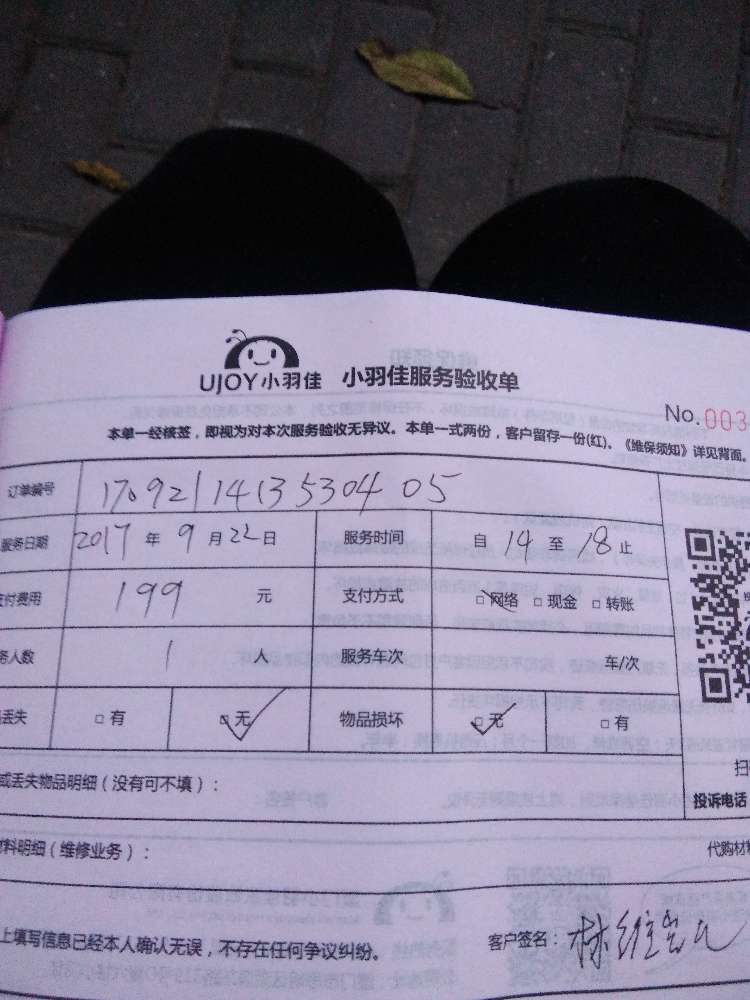 UJOY小羽佳 小羽佳服务验收单
No.003
本单一经核签，即视为对本次服务验收无异议。本单一式两份，客户留存一份(红)。《维保须知》详见背面。
订单编号 170921141353040 5
服务日期 2017 年 9 月 22 日 服务时间 自 14 至 18 止
支付费用 199 元 支付方式 □ 网络 □ 现金 □ 转账
务人数 1 服务车次 车/次
丢失 □ 有 □ 无 物品损坏 □ 无 □ 有
扫
或丢失物品明细（没有可不填）：
投诉电话
料明细（维修业务）：
代购材料
上填写信息已经本人确认无误，不存在任何争议纠纷。 客户签名：林维